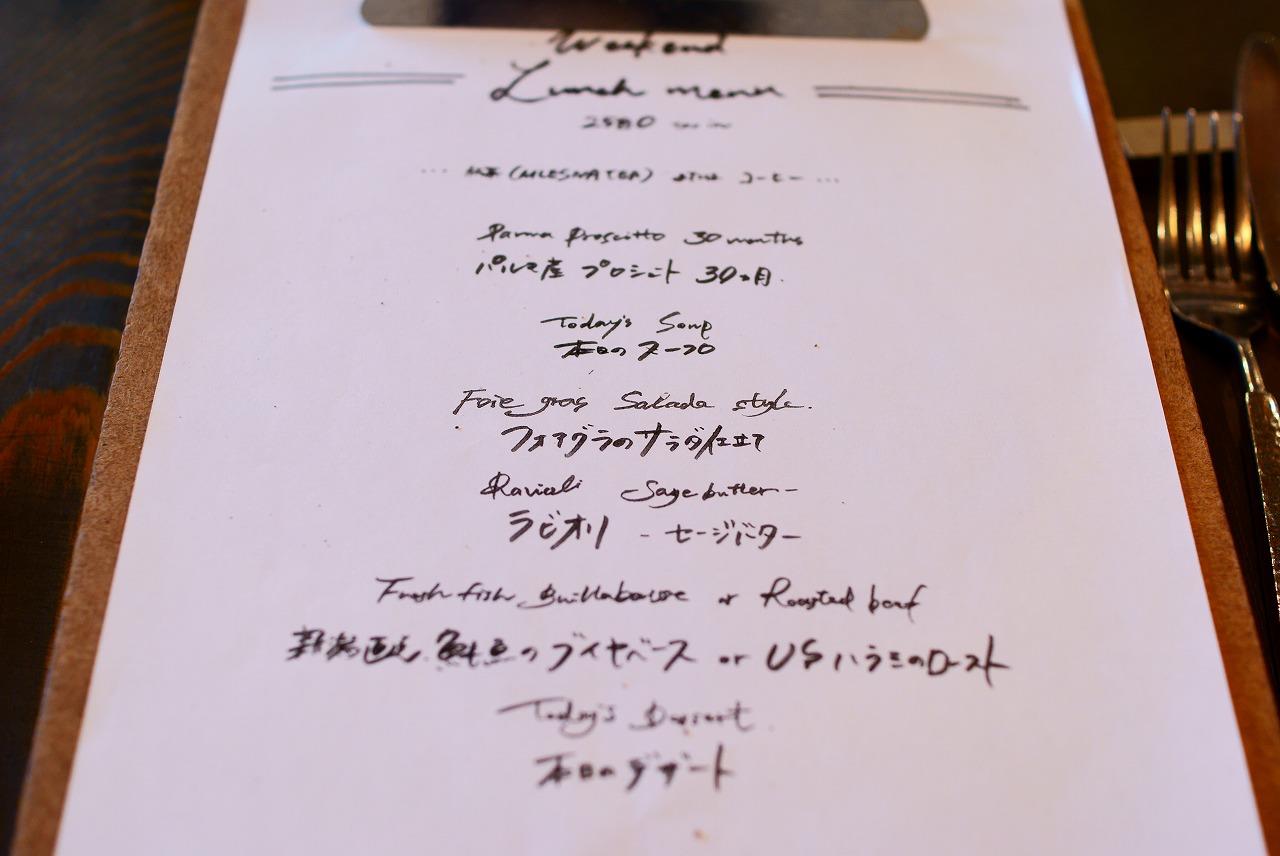 Weekend
Lunch menu
tax in
紅茶 (MLESNA TEA) または コーヒー
Parma Proscitto 30 months
パルマ産 プロシュート 30ヵ月
Today's Soup
本日のスープ
Foie gras Salada style.
フォアグラのサラダ仕立て
Ravioli Sage butter-
ラビオリ - セージバター
Fresh fish or Roasted beef
新潟直送 鮮魚のブイヤベース or USハラミのロースト
Today's
本日のデザート